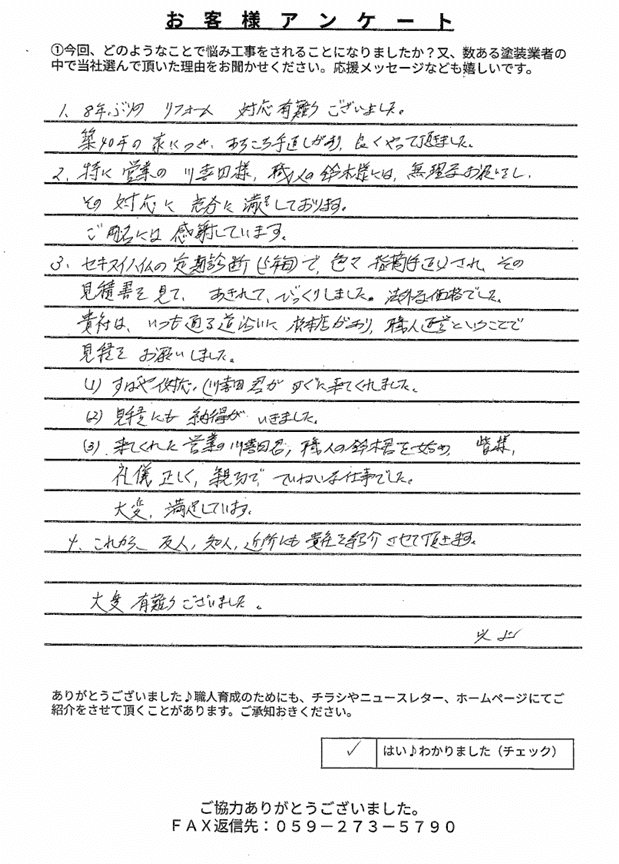 お客様アンケート
①今回、どのようなことで悩み工事をされることになりましたか？又、数ある塗装業者の
中で当社選んで頂いた理由をお聞かせください。応援メッセージなども嬉しいです。
1、8年ぶりの リフォーム 対応有難うございました。
築40年の家につき、あちこち手直しがあり、良くやって頂きました。
2、特に営業の川喜田様、職人の鈴木様には、無理なお願いをし、
その対応に充分に満足しております。
ご両名には感謝しています。
3、セキスイハイムの定期診断(5年毎)で、色々指摘され、その
見積書を見て、あきれて、びっくりしました。法外な価格でした。
貴社は、いつも通る道沿いに本店があり、職人直営ということで
見積をお願いしました。
(1) すばやい対応、川喜田君がすぐに来てくれました。
(2) 見積にも納得がいきました。
(3) 来てくれた営業の川喜田君、職人の鈴木君を始め、皆様、
礼儀正しく、親切で、ていねいな仕事でした。
大変、満足しています。
4、これから、友人、知人、近所にも貴社を紹介させて頂きます。
大変有難うございました。
以上
ありがとうございました♪職人育成のためにも、チラシやニュースレター、ホームページにてご
紹介をさせて頂くことがあります。ご承知おきください。
✓ はい♪わかりました（チェック）
ご協力ありがとうございました。
ＦＡＸ返信先：０５９－２７３－５７９０